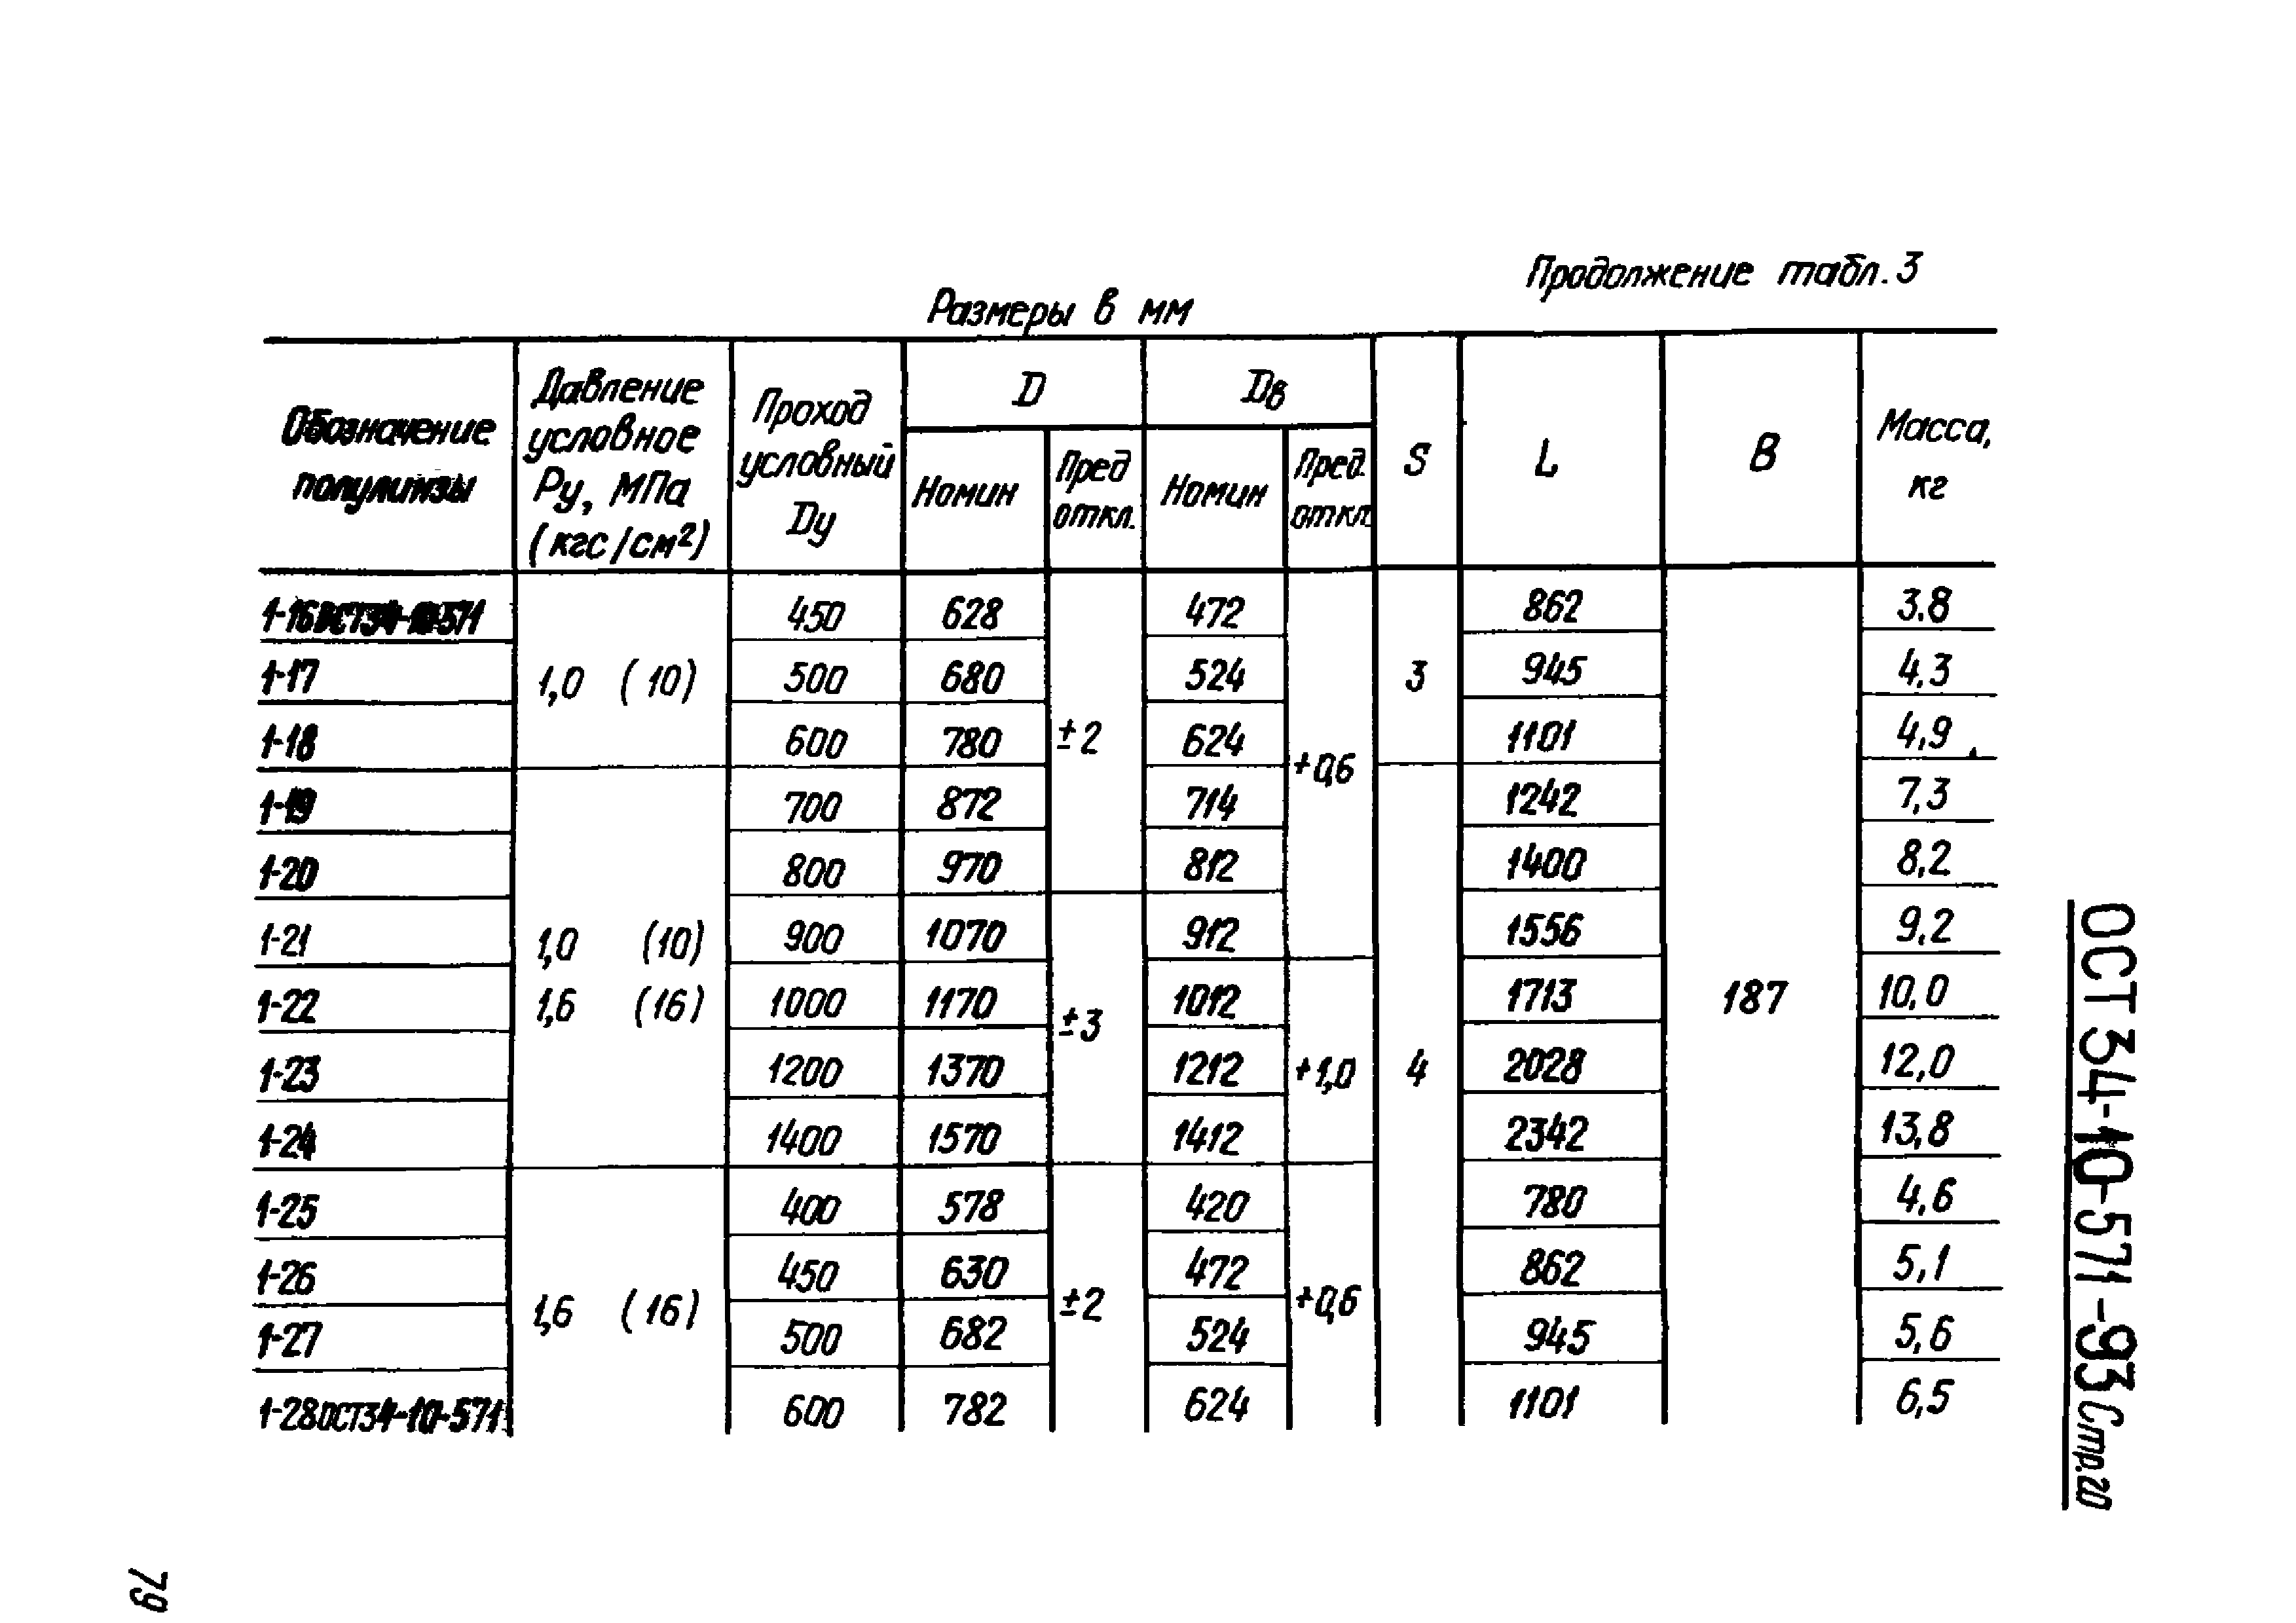 Продолжение табл. 3
Размеры в мм
Обозначение полулинзы Давление условное Ру, МПа (кгс/см²) Проход условный Dу D Dв S L B Масса, кг
Номин Пред откл. Номин Пред. откл
1-16 ОСТ34-10-571 450 628 472 862 3.8
1-17 1,0 (10) 500 680 524 3 945 4,3
1-18 600 780 ±2 624 +0,6 1101 4,9
1-19 700 872 714 1242 7,3
1-20 800 970 812 1400 8,2
1-21 1,0 (10) 900 1070 912 1556 9,2
1-22 1,6 (16) 1000 1170 ±3 1012 1713 187 10,0
1-23 1200 1370 1212 +1,0 4 2028 12,0
1-24 1400 1570 1412 2342 13,8
1-25 400 578 420 780 4,6
1-26 450 630 472 862 5,1
1-27 1,6 (16) 500 682 ±2 524 +0,6 945 5,6
1-28 ОСТ34-10-571 600 782 624 1101 6,5
ОСТ 34-10-571-93 Стр. 20
79